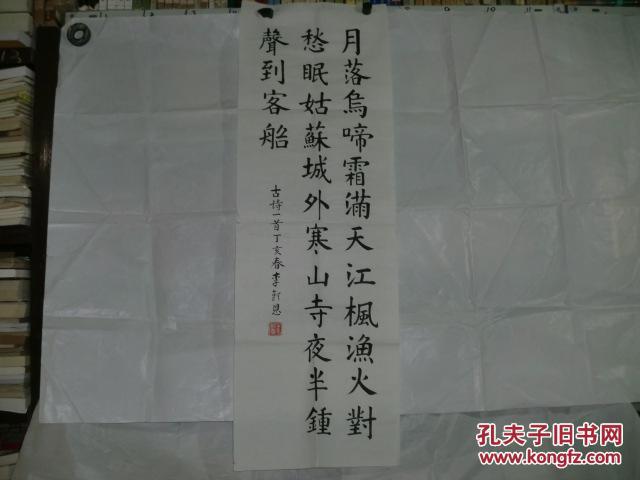 月落烏啼霜滿天江楓漁火對
愁眠姑蘇城外寒山寺夜半鍾
聲到客船
古诗一首丁亥春李
孔夫子旧书网
www.kongfz.com